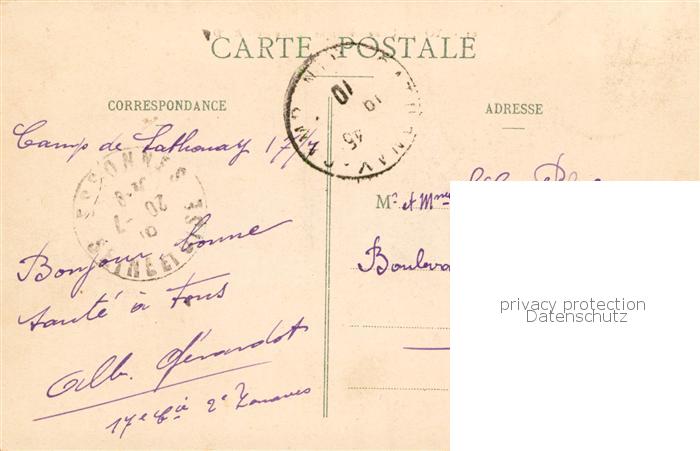 CARTE POSTALE
CORRESPONDANCE
ADRESSE
Camp de Sathonay 17/7
Bonjour bonne
santé à tous
Alb. Gérardot
17e Cie 2e Zouaves
Mr et Mme
Bouleva
privacy protection
Datenschutz